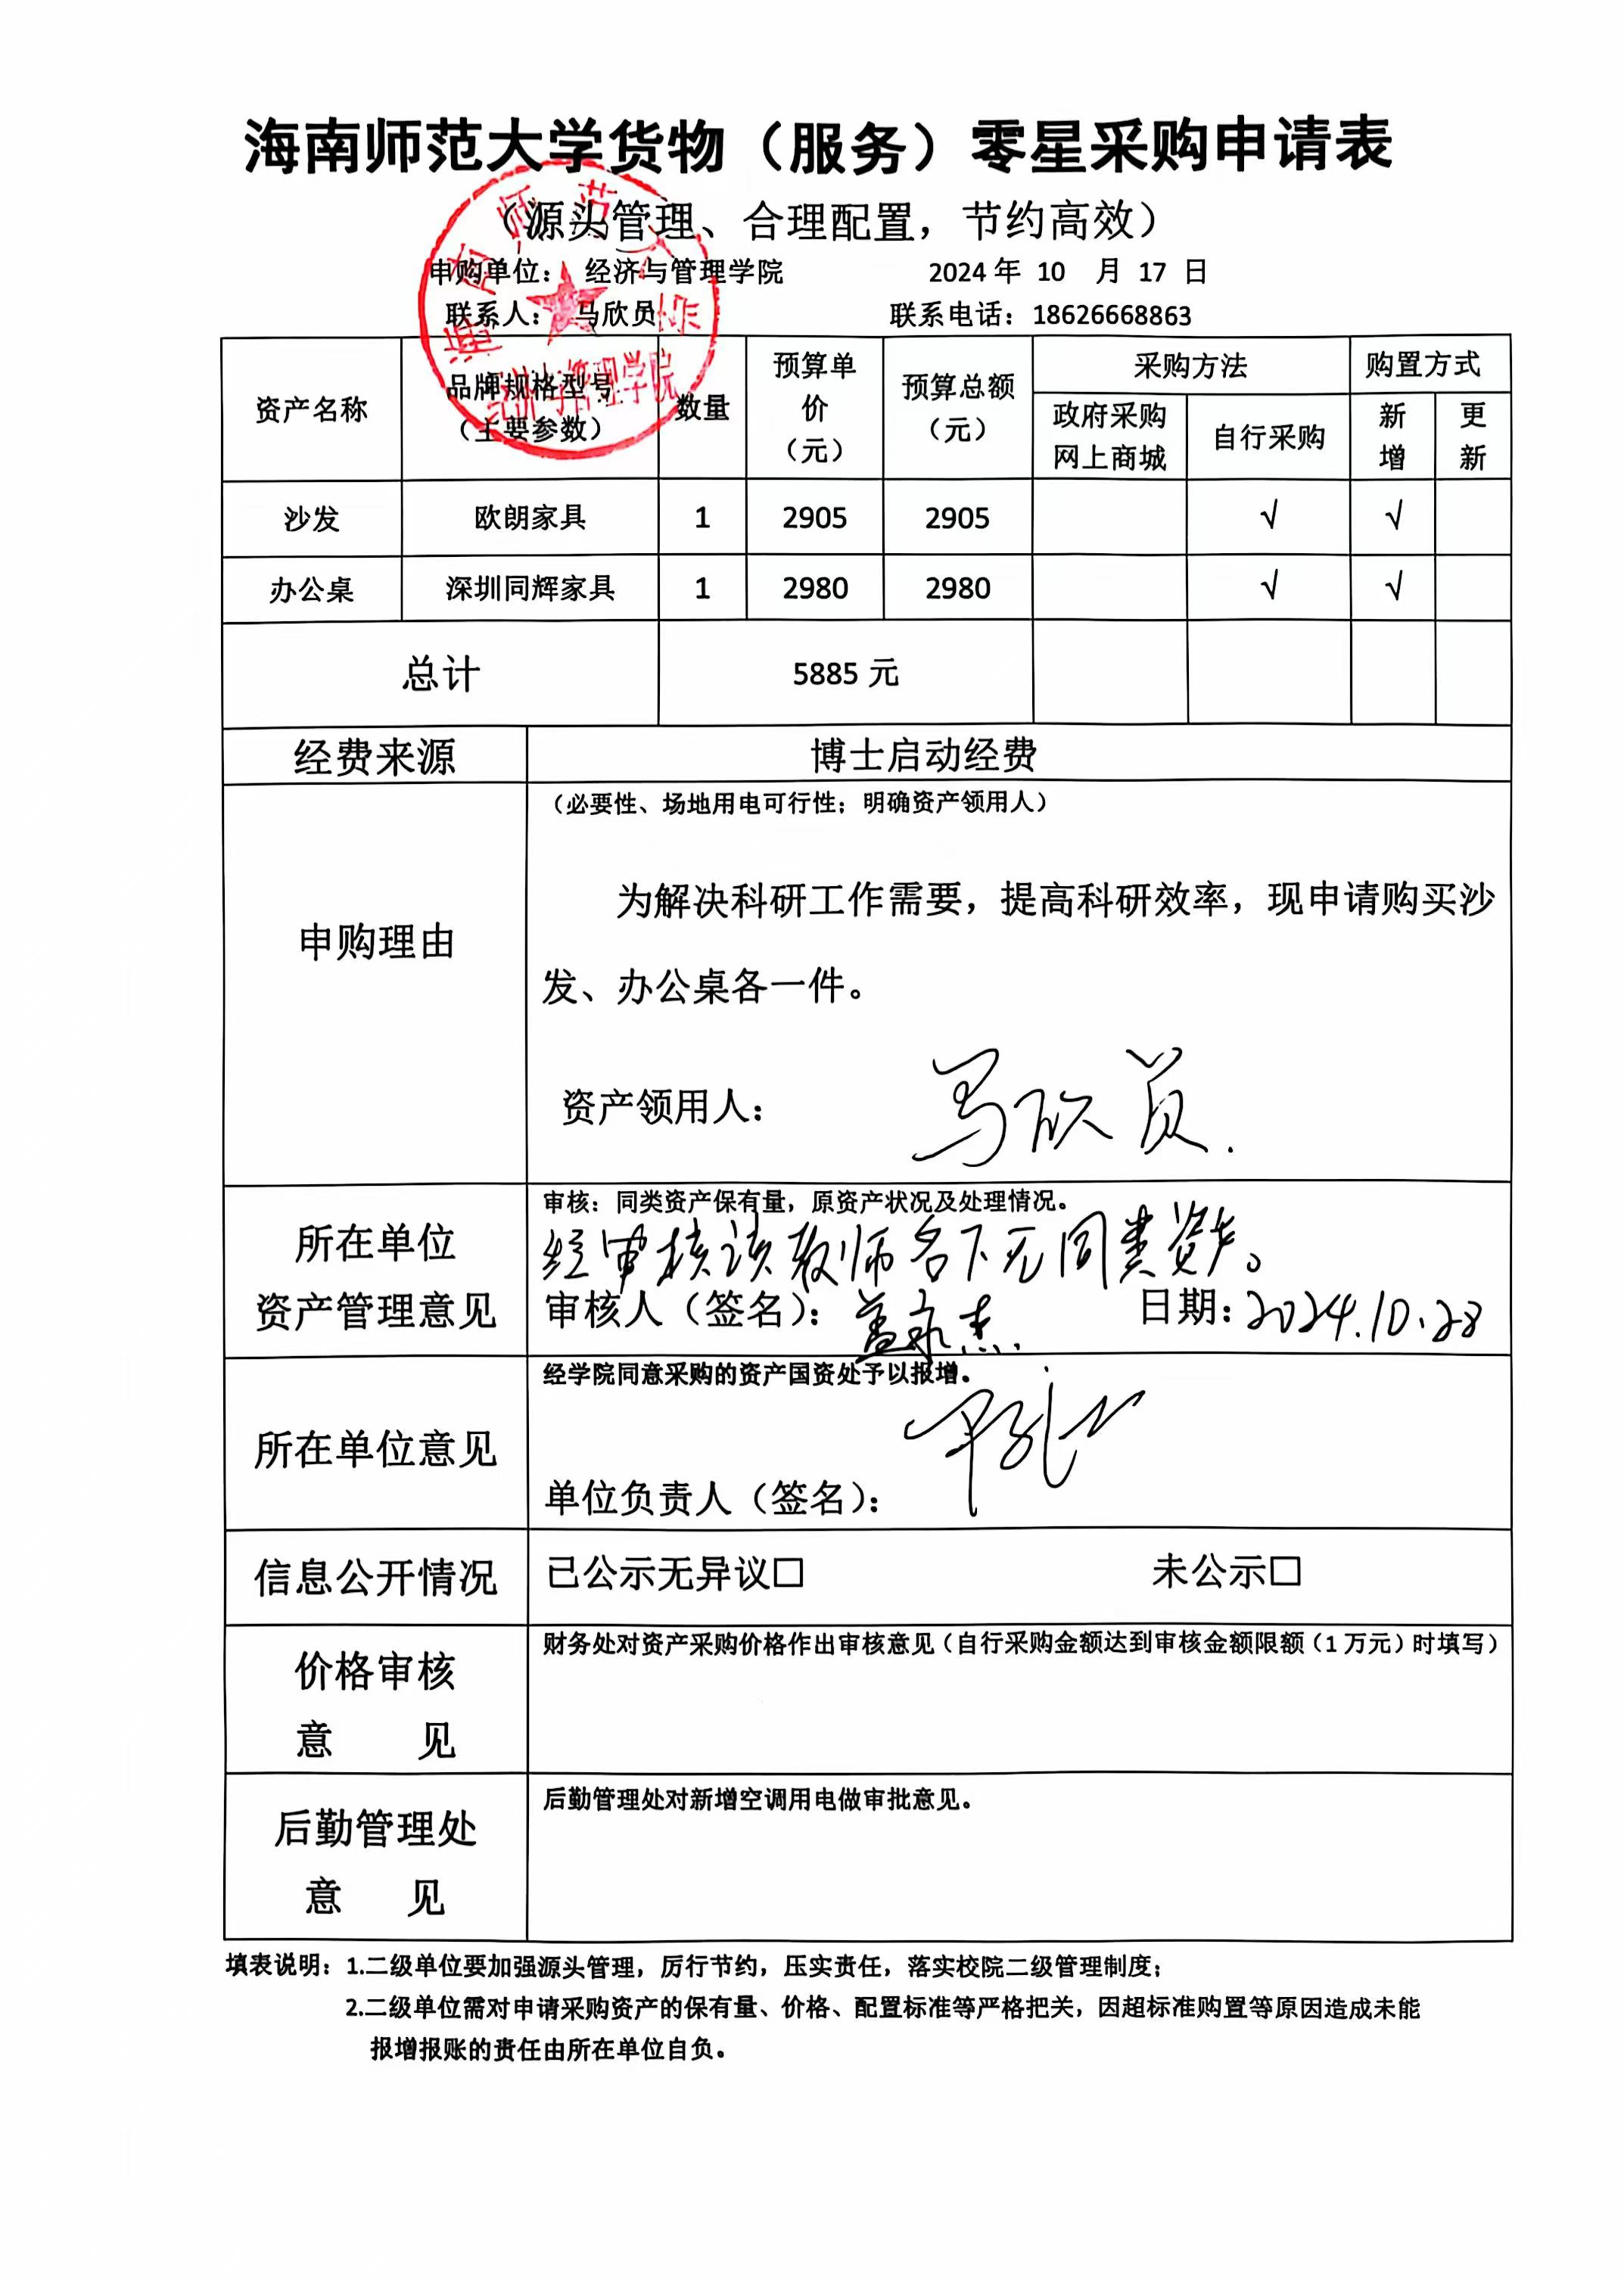 海南师范大学货物（服务）零星采购申请表
（源头管理、合理配置，节约高效）
申购单位： 经济与管理学院 2024 年 10 月 17 日
联系人： 马欣员 联系电话：18626668863
资产名称 品牌规格型号（主要参数） 数量 预算单价（元） 预算总额（元） 采购方法 购置方式
政府采购网上商城 自行采购 新增 更新
沙发 欧朗家具 1 2905 2905 √ √
办公桌 深圳同辉家具 1 2980 2980 √ √
总计 5885 元
经费来源 博士启动经费
申购理由
（必要性、场地用电可行性；明确资产领用人）
为解决科研工作需要，提高科研效率，现申请购买沙
发、办公桌各一件。
资产领用人： 马欣员
所在单位
资产管理意见
审核：同类资产保有量，原资产状况及处理情况。
经审核该教师名下无同类资产。
审核人（签名）： 日期：2024.10.28
所在单位意见
经学院同意采购的资产国资处予以报增。
单位负责人（签名）：
信息公开情况 已公示无异议☐ 未公示☐
价格审核
意 见
财务处对资产采购价格作出审核意见（自行采购金额达到审核金额限额（1 万元）时填写）
后勤管理处
意 见
后勤管理处对新增空调用电做审批意见。
填表说明：1.二级单位要加强源头管理，厉行节约，压实责任，落实校院二级管理制度；
2.二级单位需对申请采购资产的保有量、价格、配置标准等严格把关，因超标准购置等原因造成未能
报增报账的责任由所在单位自负。
海南师范大学
经济与管理学院